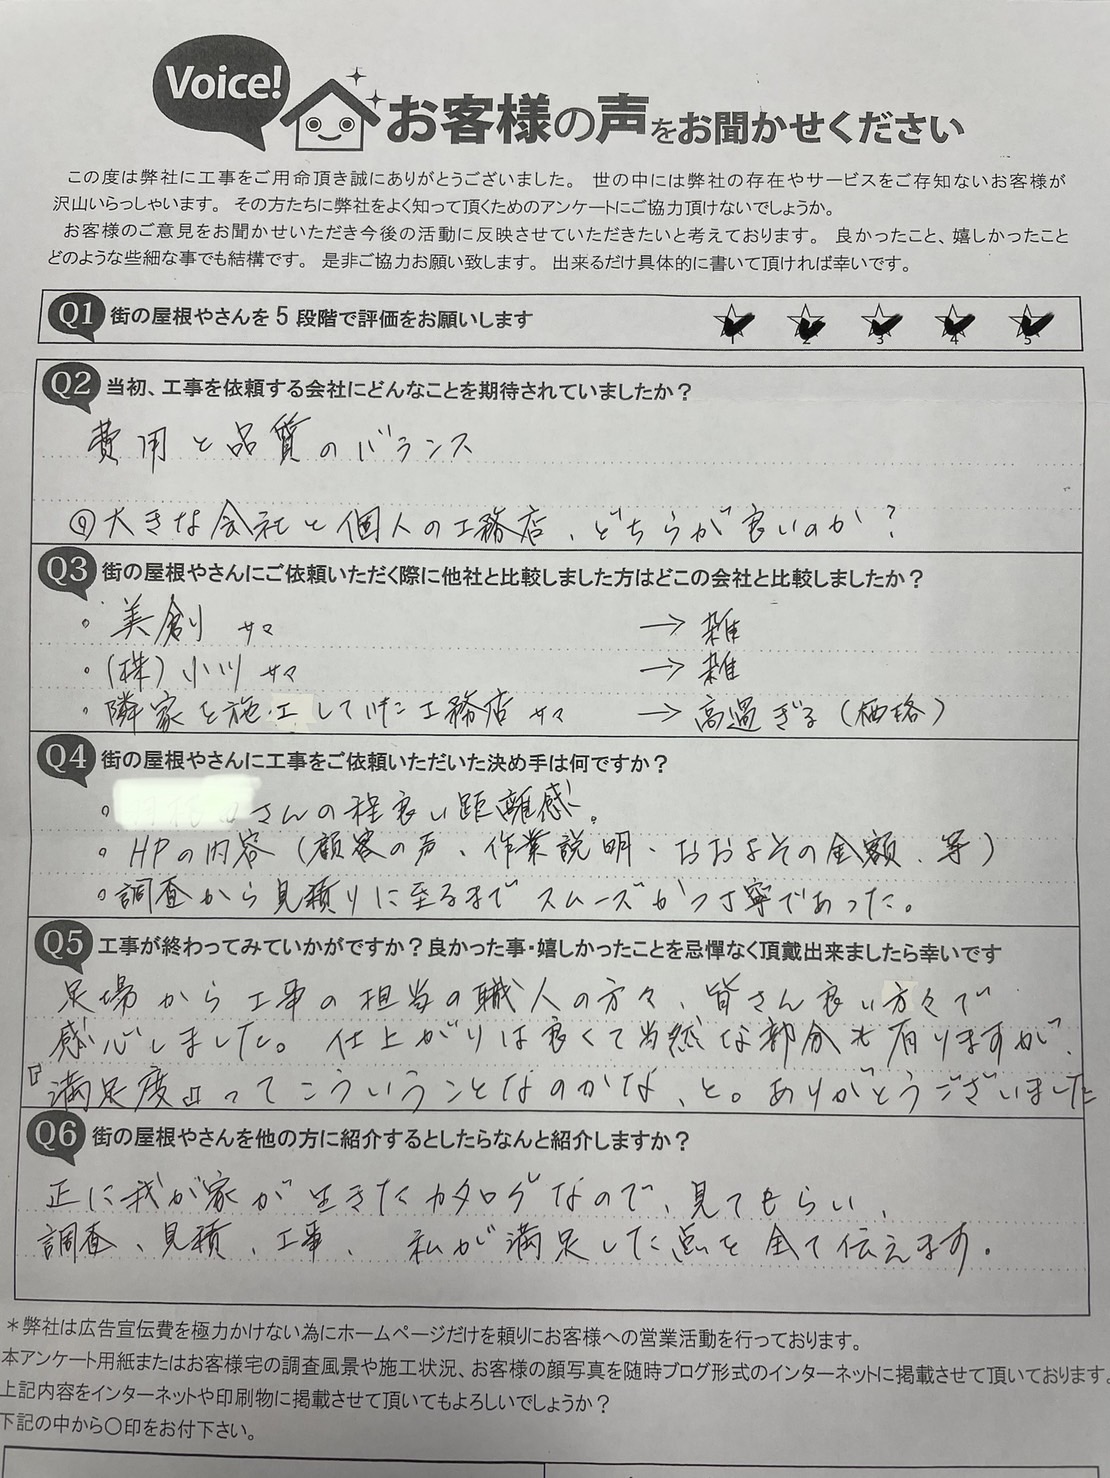 Voice!
お客様の声をお聞かせください
この度は弊社に工事をご用命頂き誠にありがとうございました。 世の中には弊社の存在やサービスをご存知ないお客様が
沢山いらっしゃいます。 その方たちに弊社をよく知って頂くためのアンケートにご協力頂けないでしょうか。
お客様のご意見をお聞かせいただき今後の活動に反映させていただきたいと考えております。 良かったこと、嬉しかったこと
どのような些細な事でも結構です。 是非ご協力お願い致します。 出来るだけ具体的に書いて頂ければ幸いです。
Q1 街の屋根やさんを5段階で評価をお願いします 1 2 3 4 5
Q2 当初、工事を依頼する会社にどんなことを期待されていましたか？
費用と品質のバランス
◎大きな会社と個人の工務店、どちらが良いのか？
Q3 街の屋根やさんにご依頼いただく際に他社と比較しました方はどこの会社と比較しましたか？
・美創 サマ → 雑
・(株)小川 サマ → 雑
・隣家を施工していた工務店 サマ → 高過ぎる(価格)
Q4 街の屋根やさんに工事をご依頼いただいた決め手は何ですか？
・さんの程良い距離感。
・HPの内容(顧客の声、作業説明・おおよその金額、等)
・調査から見積りに至るまでスムーズかつ丁寧であった。
Q5 工事が終わってみていかがですか？良かった事・嬉しかったことを忌憚なく頂戴出来ましたら幸いです
足場から工事の担当の職人の方々、皆さん良い方々で
感心しました。仕上がりは良くて当然な部分も有りますが、
『満足度』ってこういうことなのかな、と。ありがとうございました
Q6 街の屋根やさんを他の方に紹介するとしたらなんと紹介しますか？
正に我が家が生きたカタログなので、見てもらい、
調査、見積、工事、私が満足した点を全て伝えます。
＊弊社は広告宣伝費を極力かけない為にホームページだけを頼りにお客様への営業活動を行っております。
本アンケート用紙またはお客様宅の調査風景や施工状況、お客様の顔写真を随時ブログ形式のインターネットに掲載させて頂いております。
上記内容をインターネットや印刷物に掲載させて頂いてもよろしいでしょうか？
下記の中から〇印をお付下さい。